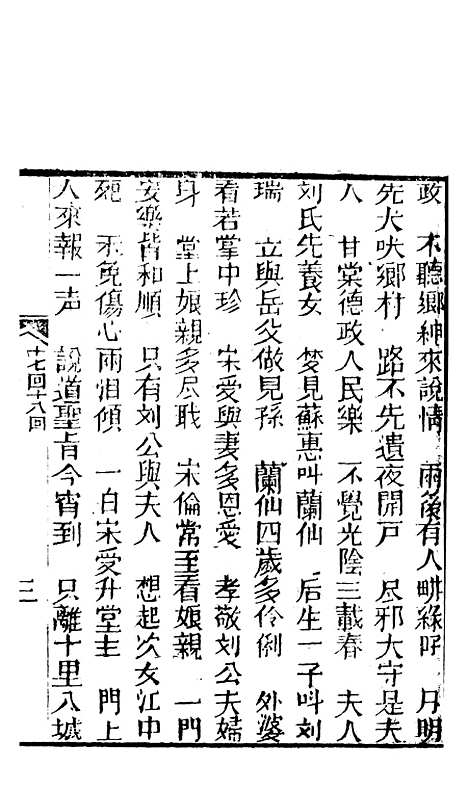 政　不聽鄉紳來說情　雨後有人畊綠野　月明
先犬吠鄉村　路不先遺夜開戸　尽邪太守是夫
人　甘棠德政人民樂　不覺光陰三載春　夫人
刘氏先養女　梦見蘇惠叫蘭仙　后生一子呌刘
瑞　立與岳父做見孫　蘭仙四歲多伶俐　外婆
看若掌中珍　宋爱與妻多恩爱　孝敬刘公夫婦
身　堂上娘親多尽耿　宋倫常至看娘親　一門
安樂皆和順　只有刘公與夫人　想起次女江中
死　不免傷心雨泪傾　一白宋爱升堂主　門上
人來報一声　說道聖旨今宵到　只離十里入城
十七回十八回　二